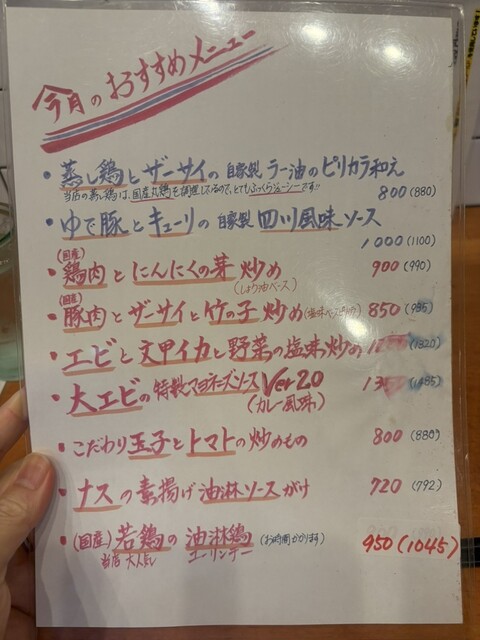 今月のおすすめメニュー
・蒸し鶏とザーサイの自家製ラー油のピリカラ和え
当店の蒸し鶏は、国産丸鶏を調理しているので、とてもふっくらジューシーです!! 800(880)
・ゆで豚とキューリの自家製四川風味ソース
1000(1100)
・(国産)鶏肉とにんにくの芽炒め 900(990)
(しょう油ベース)
・(国産)豚肉とザーサイと竹の子炒め 850(935)
・エビと文甲イカと野菜の塩味炒め (1320)
・大エビの特製マヨネーズソースVer20 (1485)
(カレー風味)
・こだわり玉子とトマトの炒めもの 800(880)
・ナスの素揚げ油淋ソースがけ 720(792)
・(国産)若鶏の油淋鶏(お時間かかります) 950(1045)
当店大人気 ユーリンチー